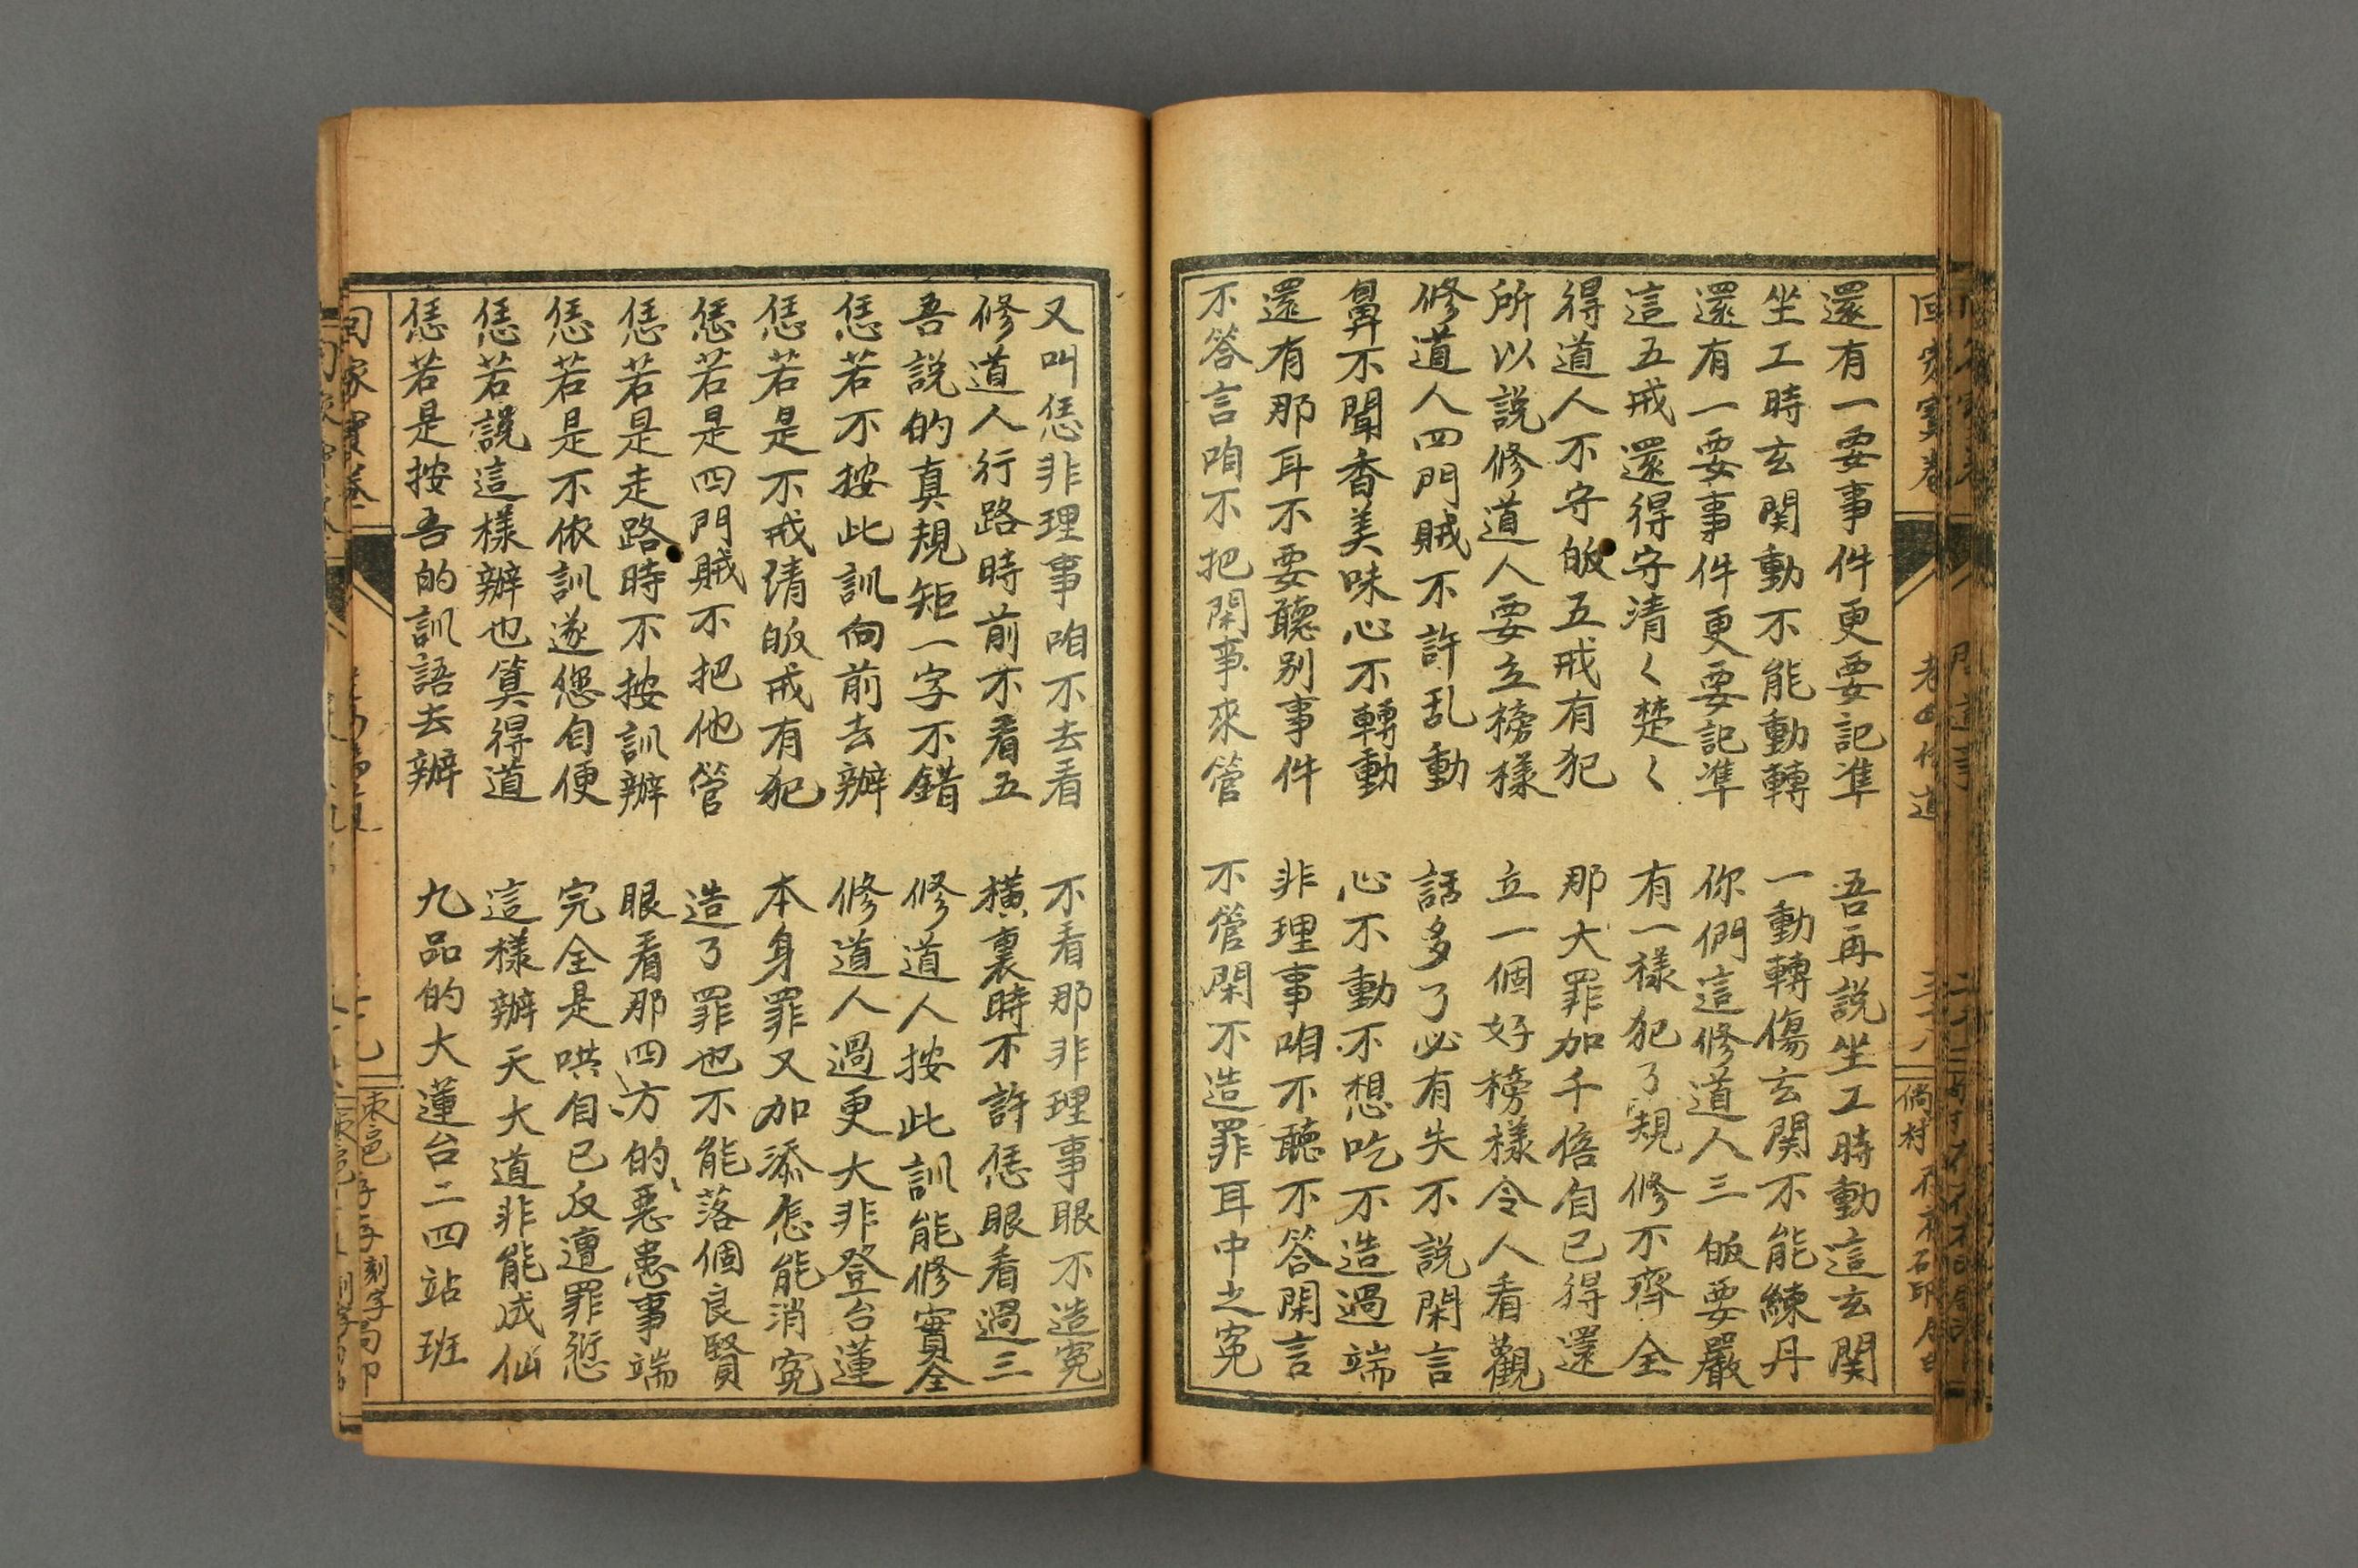 還有一要事件更要記凖　吾再説坐工時動這玄関
坐工時玄関動不能動轉　一動轉傷玄関不能練丹
還有一要事件更要記凖　你們這修道人三皈要嚴
這五戒還得守清く楚く　有一樣犯了規修不齊全
得道人不守皈五戒有犯　那大罪加千倍自已得還
所以説修道人要立榜樣　立一個好榜樣令人看觀
修道人四門賊不許乱動　話多了必有失不説閑言
鼻不聞香美味心不轉動　心不動不想吃不造過端
還有那耳不要聽别事件　非理事咱不聽不答閑言
不答言咱不把閑事來管　不管閑不造罪耳中之寃
又叫恁非理事咱不去看　不看那非理事眼不造寃
修道人行路時前不看五　横裏時不許恁眼看過三
吾説的真規矩一字不錯　修道人按此訓能修實全
恁若不按此訓向前去辦　修道人過更大非登台蓮
恁若是不戒清皈戒有犯　本身罪又加添怎能消寃
恁若是四門賊不把他管　造了罪也不能落個良賢
恁若是走路時不按訓辦　眼看那四方的惡患事端
恁若是不依訓遂您自便　完全是哄自已反遭罪愆
恁若說這樣辦也算得道　這樣辦天大道非能成仙
恁若是按吾的訓語去辦　九品的大蓮台二四站班